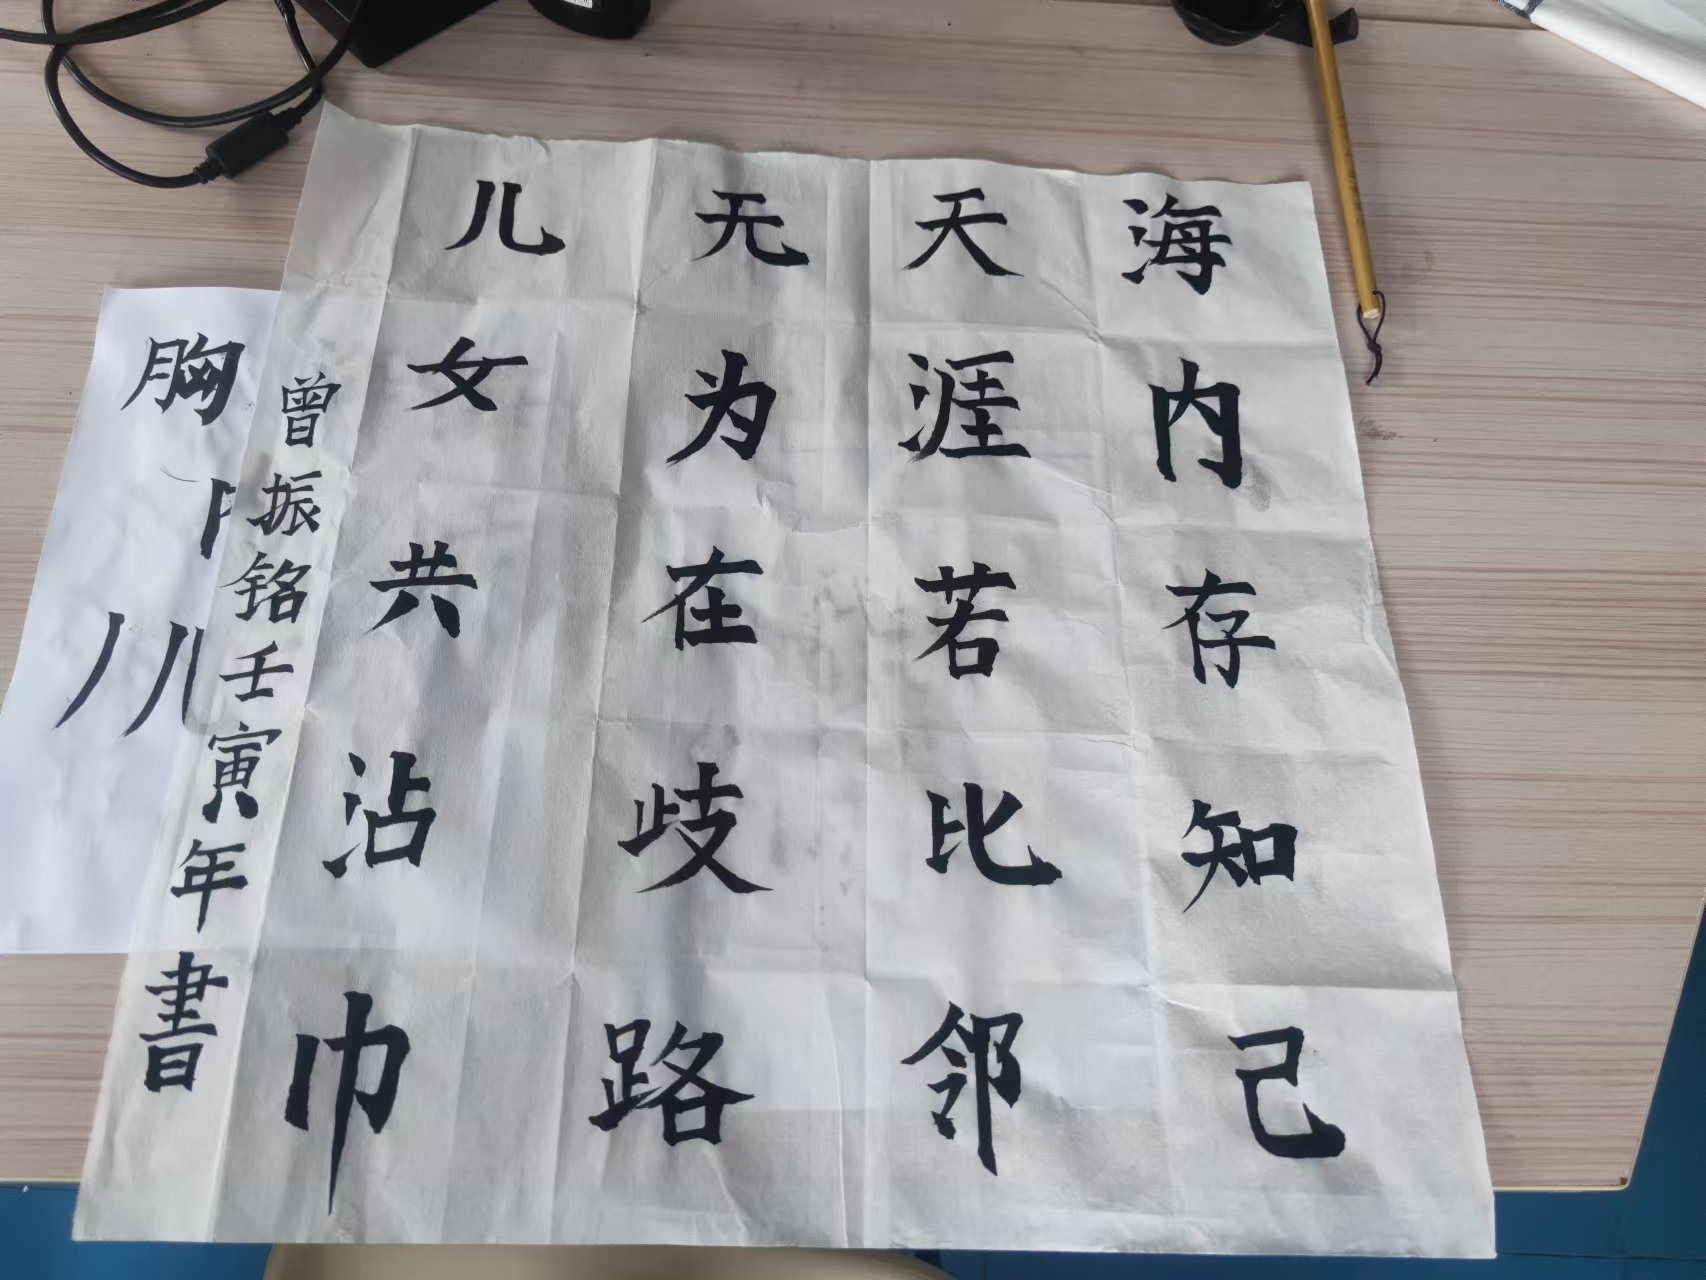 海内存知己
天涯若比邻
无为在歧路
儿女共沾巾
曾振铭壬寅年書
胸